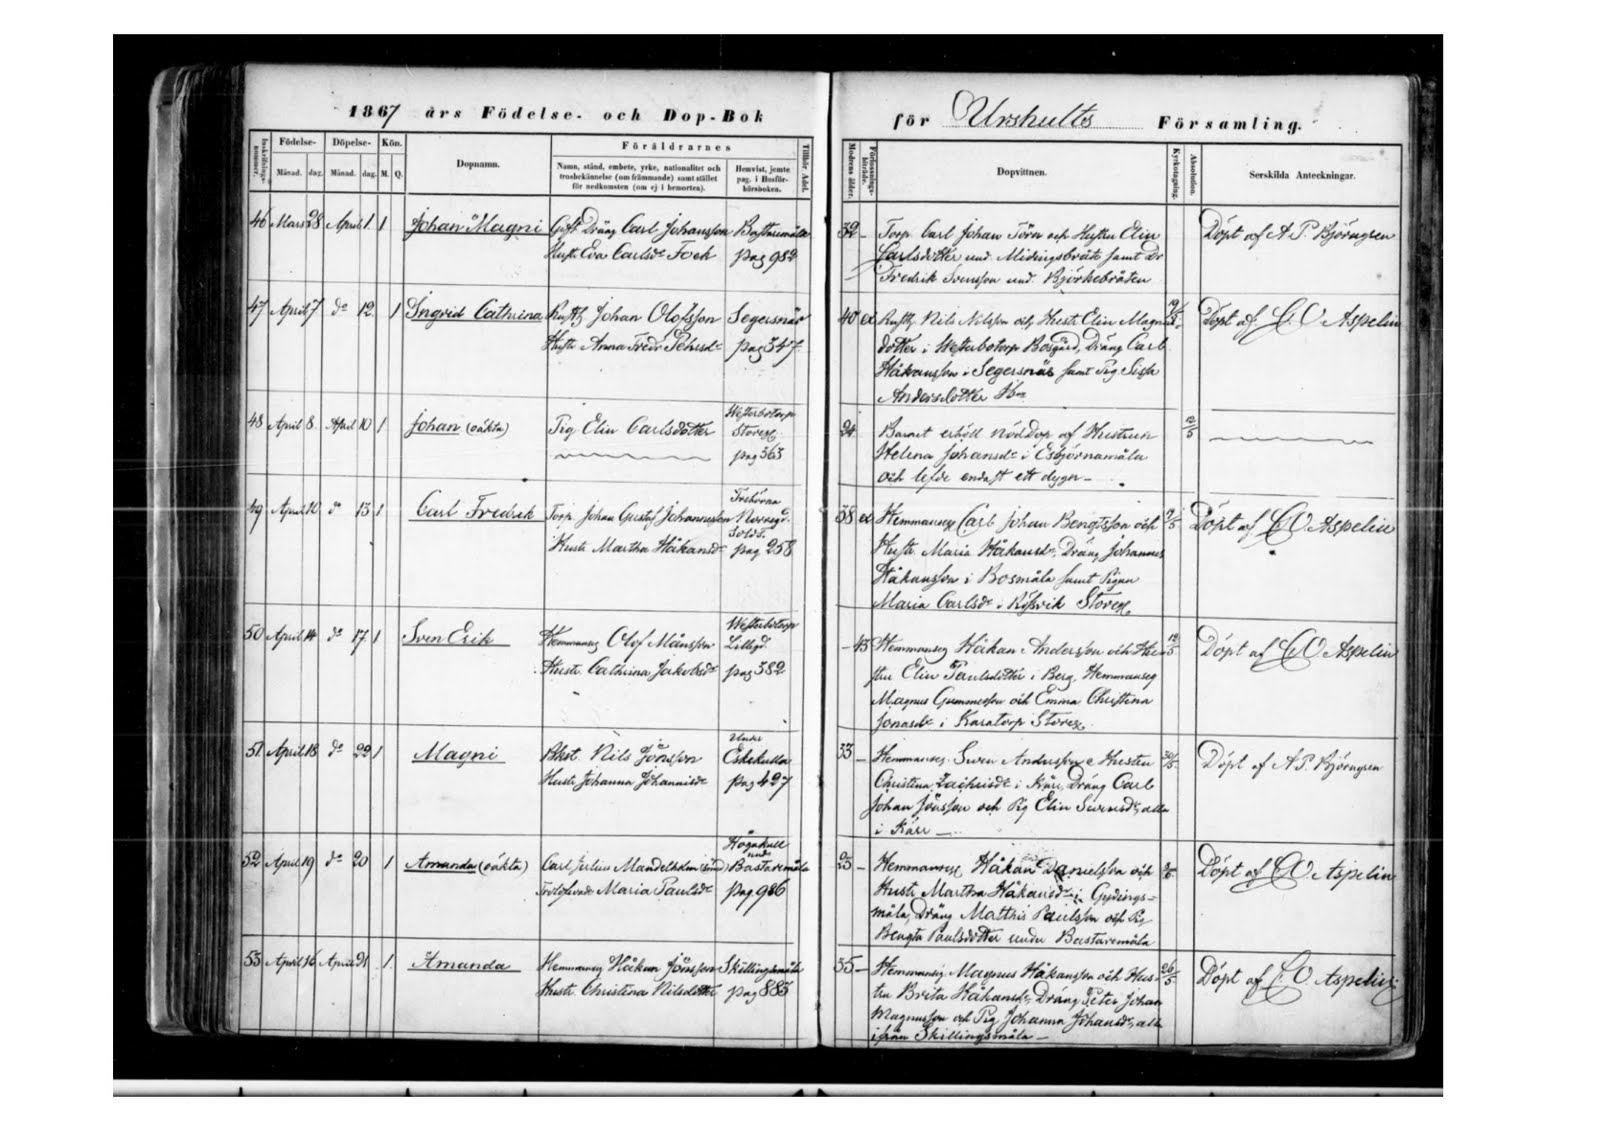 1867 års Födelse- och Dop-Bok
för Urshults Församling.
Inskrifnings-nummer.
Födelse-
Månad. dag.
Döpelse-
Månad. dag.
Kön.
M. Q.
Dopnamn.
Föräldrarnes
Namn, stånd, embete, yrke, nationalitet och
trosbekännelse (om främmande) samt stället
för nedkomsten (om ej i hemorten).
Hemvist, jemte
pag. i Husför-
hörsboken.
Tillhör Adel.
Modrens ålder.
Dopvittnen.
Kyrkotagning.
Absolution.
Serskilda Anteckningar.
46 Mars 28 April 1 1 Johan Magni
Dräng Carl Johansson
Hustr Eva Carlsd. Fock
pag 982
32 –
Torp. Carl Johan Törn och Hustru Elin
Carlsdotter und. Midingsbråte samt Dr
Fredrik Svensson und. Björkebråten
Döpt af A P. Björngren
47 April 7 do 12 1 Ingrid Cathrina
Johan Olofsson
Hustr Anna Fredr. Pehrsd.
Segersnäs
pag 347
40
Nils Nilsson och Hustr. Elin Magni
dotter i Westerbotorp Bosgård, Dräng Carl
Håkansson i Segersnäs samt Pig Sissa
Andersdotter
Döpt af C. O. Aspelin
48 April 8 April 10 1 Johan (oäkta)
Pig. Elin Carlsdotter
Westerbotorp
Storeg.
pag 363
24
Barnet erhöll nöddop af Hustrun
Helena Johansd. i Esbjörnamåla
och lefde endast ett dygn –
12/5
49 April 10 do 13 1 Carl Fredrik
Torp. Johan Gustaf Johannesson
Hustr Martha Håkansd.
Norreg.
pag 258
38
Hemmanseg Carl Johan Bengtsson och
Hustr. Maria Håkansd., Dräng Johannes
Håkansson i Bosmåla samt Pigan
Maria Carlsd. i Rössvik Storeg.
Döpt af C O. Aspelin
50 April 14 do 17 1 Sven Erik
Hemmanseg Olof Månsson
Hustr. Cathrina Jakobsd.
Westerbotorp
Lilleg.
pag 382
45
Hemmanseg Håkan Andersson och Hu-
stru Elin Paulsdotter i Berg, Hemmanseg
Magnus Gummesson och Emma Christina
Jonasd. i Karatorp Storeg.
12/5
Döpt af C O. Aspelin
51 April 18 do 22 1 Magni
Nils Jönsson
Hustr. Johanna Johannisd.
under
Eskekulla
pag 427
33 –
Hemmanseg. Sven Andersson o Hustru
Christina Zachrisd. i Kärr, Dräng Carl
Johan Jönsson och Pig Elin Svensd. alla
i Kärr –
30/5
Döpt af A P. Björngren
52 April 19 do 20 1 Amanda (oäkta)
Carl Julius Mandelholm
Trolofvade Maria Paulsd.
Högakull
und.
Bastaremåla
pag 986
25 –
Hemmanseg Håkan Danielsson och
Hustr. Martha Håkansd. i Gydings-
måla, Dräng Matthis Paulsson och Pig
Bengta Paulsdotter under Bastaremåla
Döpt af C O Aspelin
53 April 16 April 21 1 Amanda
Hemmanseg Håkan Jönsson
Hustr. Christina Nilsdotter
Skillingsmåla
pag 883
35 –
Hemmanseg. Magnus Håkansson och Hus-
tru Brita Håkansd., Dräng Peter Johan
Magnusson och Pig Johanna Johansd., alla
ifrån Skillingsmåla –
26/5
Döpt af C. O. Aspelin